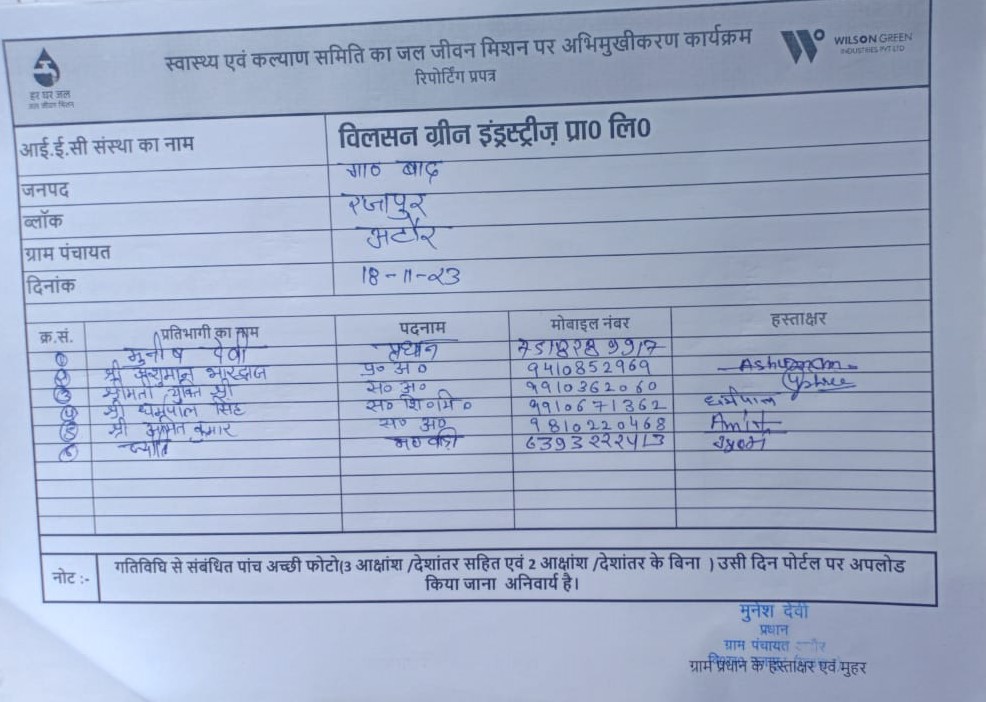 हर घर जल
जल जीवन मिशन
स्वास्थ्य एवं कल्याण समिति का जल जीवन मिशन पर अभिमुखीकरण कार्यक्रम
रिपोर्टिंग प्रपत्र
WILSON GREEN
INDUSTRIES PVT LTD
आई.ई.सी संस्था का नाम विलसन ग्रीन इंड्रस्ट्रीज़ प्रा0 लि0
जनपद गा० बाद
ब्लॉक रजापुर
ग्राम पंचायत भटौर
दिनांक 18-11-23
क्र.सं. प्रतिभागी का नाम पदनाम मोबाइल नंबर हस्ताक्षर
① मुनीष देवी प्रधान
② श्री अंशुमान भारद्वाज प्र० अ० 9410852969
③ श्रीमती युक्ति श्री स० अ० 9910362060
④ श्री धर्मपाल सिंह स० शि०मि० 9910671362 धर्मपाल
⑤ श्री अमित कुमार स० अ० 9810220468 Amit
⑥ ज्योति 6393222413
नोट :- गतिविधि से संबंधित पांच अच्छी फोटो(3 आक्षांश /देशांतर सहित एवं 2 आक्षांश /देशांतर के बिना ) उसी दिन पोर्टल पर अपलोड
किया जाना अनिवार्य है।
मुनेश देवी
प्रधान
ग्राम पंचायत
ग्राम प्रधान के हस्ताक्षर एवं मुहर